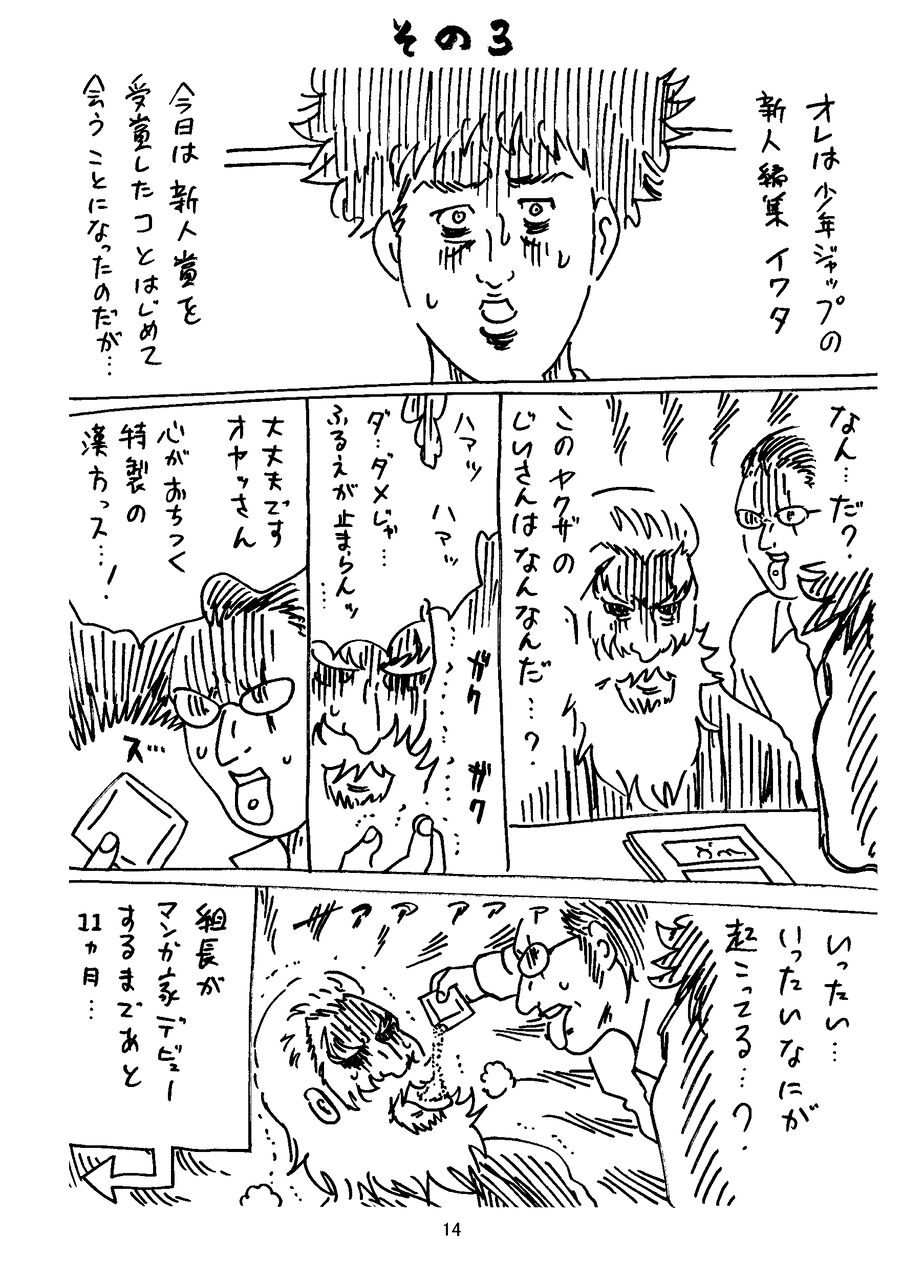 その3
オレは少年ジャップの
新人編集 イワタ
今日は新人賞を
受賞したコとはじめて
会うことになったのだが…
なん…だ?
このヤクザの
じいさんはなんなんだ…?
ハァッ
ハァッ
ダ…ダメじゃ…
ふるえが止まらんッ
…
ガク
ガク
大丈夫です
オヤッさん
心がおちつく
特製の
漢方っス…!
ズ…
いったい…
いったいなにが
起こってる…?
サァァァァァ
組長が
マンガ家デビュー
するまであと
11ヵ月…
14